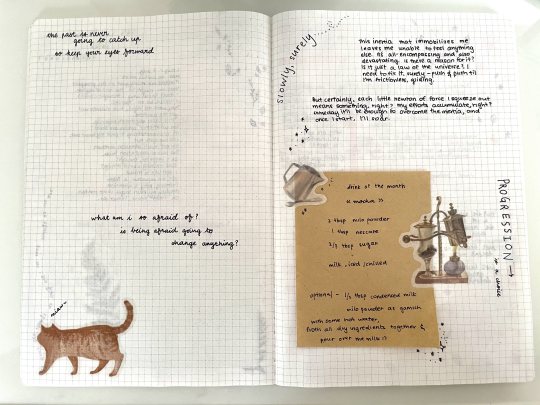 the past is never
going to catch up
so keep your eyes forward
what am i so afraid of?
is being afraid going to
change anything?
miaow~
slowly, surely
this inertia that immobilizes me
leaves me unable to feel anything
else. its all-encompassing and also
devastating. is there a reason for it?
is it just a law of the universe? i
need to fix it, surely - push & push til
i'm frictionless, gliding.
But certainly, each little newton of force i squeeze out
means something, right? my efforts accumulate, right?
someday it'll be enough to overcome the inertia, and
once i start, i'll soar.
drink of the month
mocha
2 tbsp milo powder
1 tbsp nescafe
tbsp sugar
milk, iced/chilled
optional - 1/2 tbsp condensed milk
milo powder as garnish
with some hot water,
froth all dry ingredients together &
pour over the milk !!
PROGRESSION →
is a choice